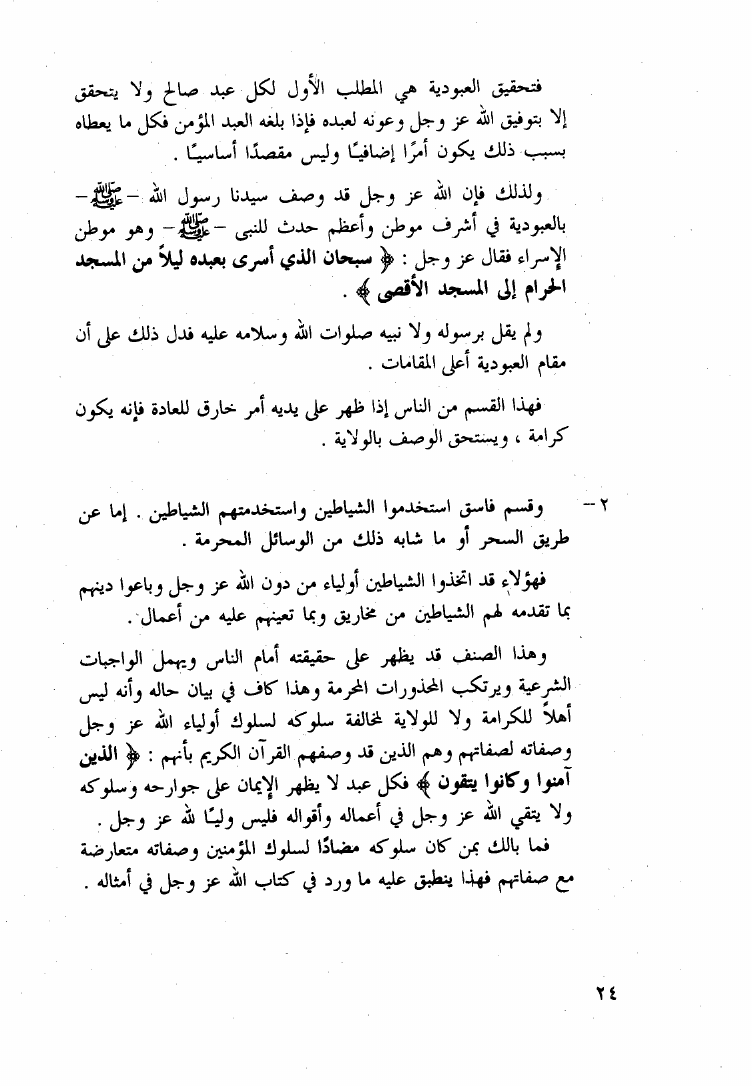 فتحقيق العبودية هي المطلب الأول لكل عبد صالح ولا يتحقق
إلا بتوفيق الله عز وجل وعونه لعبده فإذا بلغه العبد المؤمن فكل ما يعطاه
بسبب ذلك يكون أمرًا إضافيًا وليس مقصدًا أساسيًا .
ولذلك فإن الله عز وجل قد وصف سيدنا رسول الله – ﷺ –
بالعبودية في أشرف موطن وأعظم حدث للنبى – ﷺ – وهو موطن
الإسراء فقال عز وجل : ﴿ سبحان الذي أسرى بعبده ليلاً من المسجد
الحرام إلى المسجد الأقصى ﴾ .
ولم يقل برسوله ولا نبيه صلوات الله وسلامه عليه فدل ذلك على أن
مقام العبودية أعلى المقامات .
فهذا القسم من الناس إذا ظهر على يديه أمر خارق للعادة فإنه يكون
كرامة ، ويستحق الوصف بالولاية .
٢ – وقسم فاسق استخدموا الشياطين واستخدمتهم الشياطين . إما عن
طريق السحر أو ما شابه ذلك من الوسائل المحرمة .
فهؤلاء قد اتخذوا الشياطين أولياء من دون الله عز وجل وباعوا دينهم
بما تقدمه لهم الشياطين من مخاريق وبما تعينهم عليه من أعمال .
وهذا الصنف قد يظهر على حقيقته أمام الناس ويهمل الواجبات
الشرعية ويرتكب المحذورات المحرمة وهذا كاف في بيان حاله وأنه ليس
أهلاً للكرامة ولا للولاية لمخالفة سلوكه لسلوك أولياء الله عز وجل
وصفاته لصفاتهم وهم الذين قد وصفهم القرآن الكريم بأنهم : ﴿ الذين
آمنوا وكانوا يتقون ﴾ فكل عبد لا يظهر الإيمان على جوارحه وسلوكه
ولا يتقي الله عز وجل في أعماله وأقواله فليس وليًا لله عز وجل .
فما بالك بمن كان سلوكه مضادًا لسلوك المؤمنين وصفاته متعارضة
مع صفاتهم فهذا ينطبق عليه ما ورد في كتاب الله عز وجل في أمثاله .
٢٤